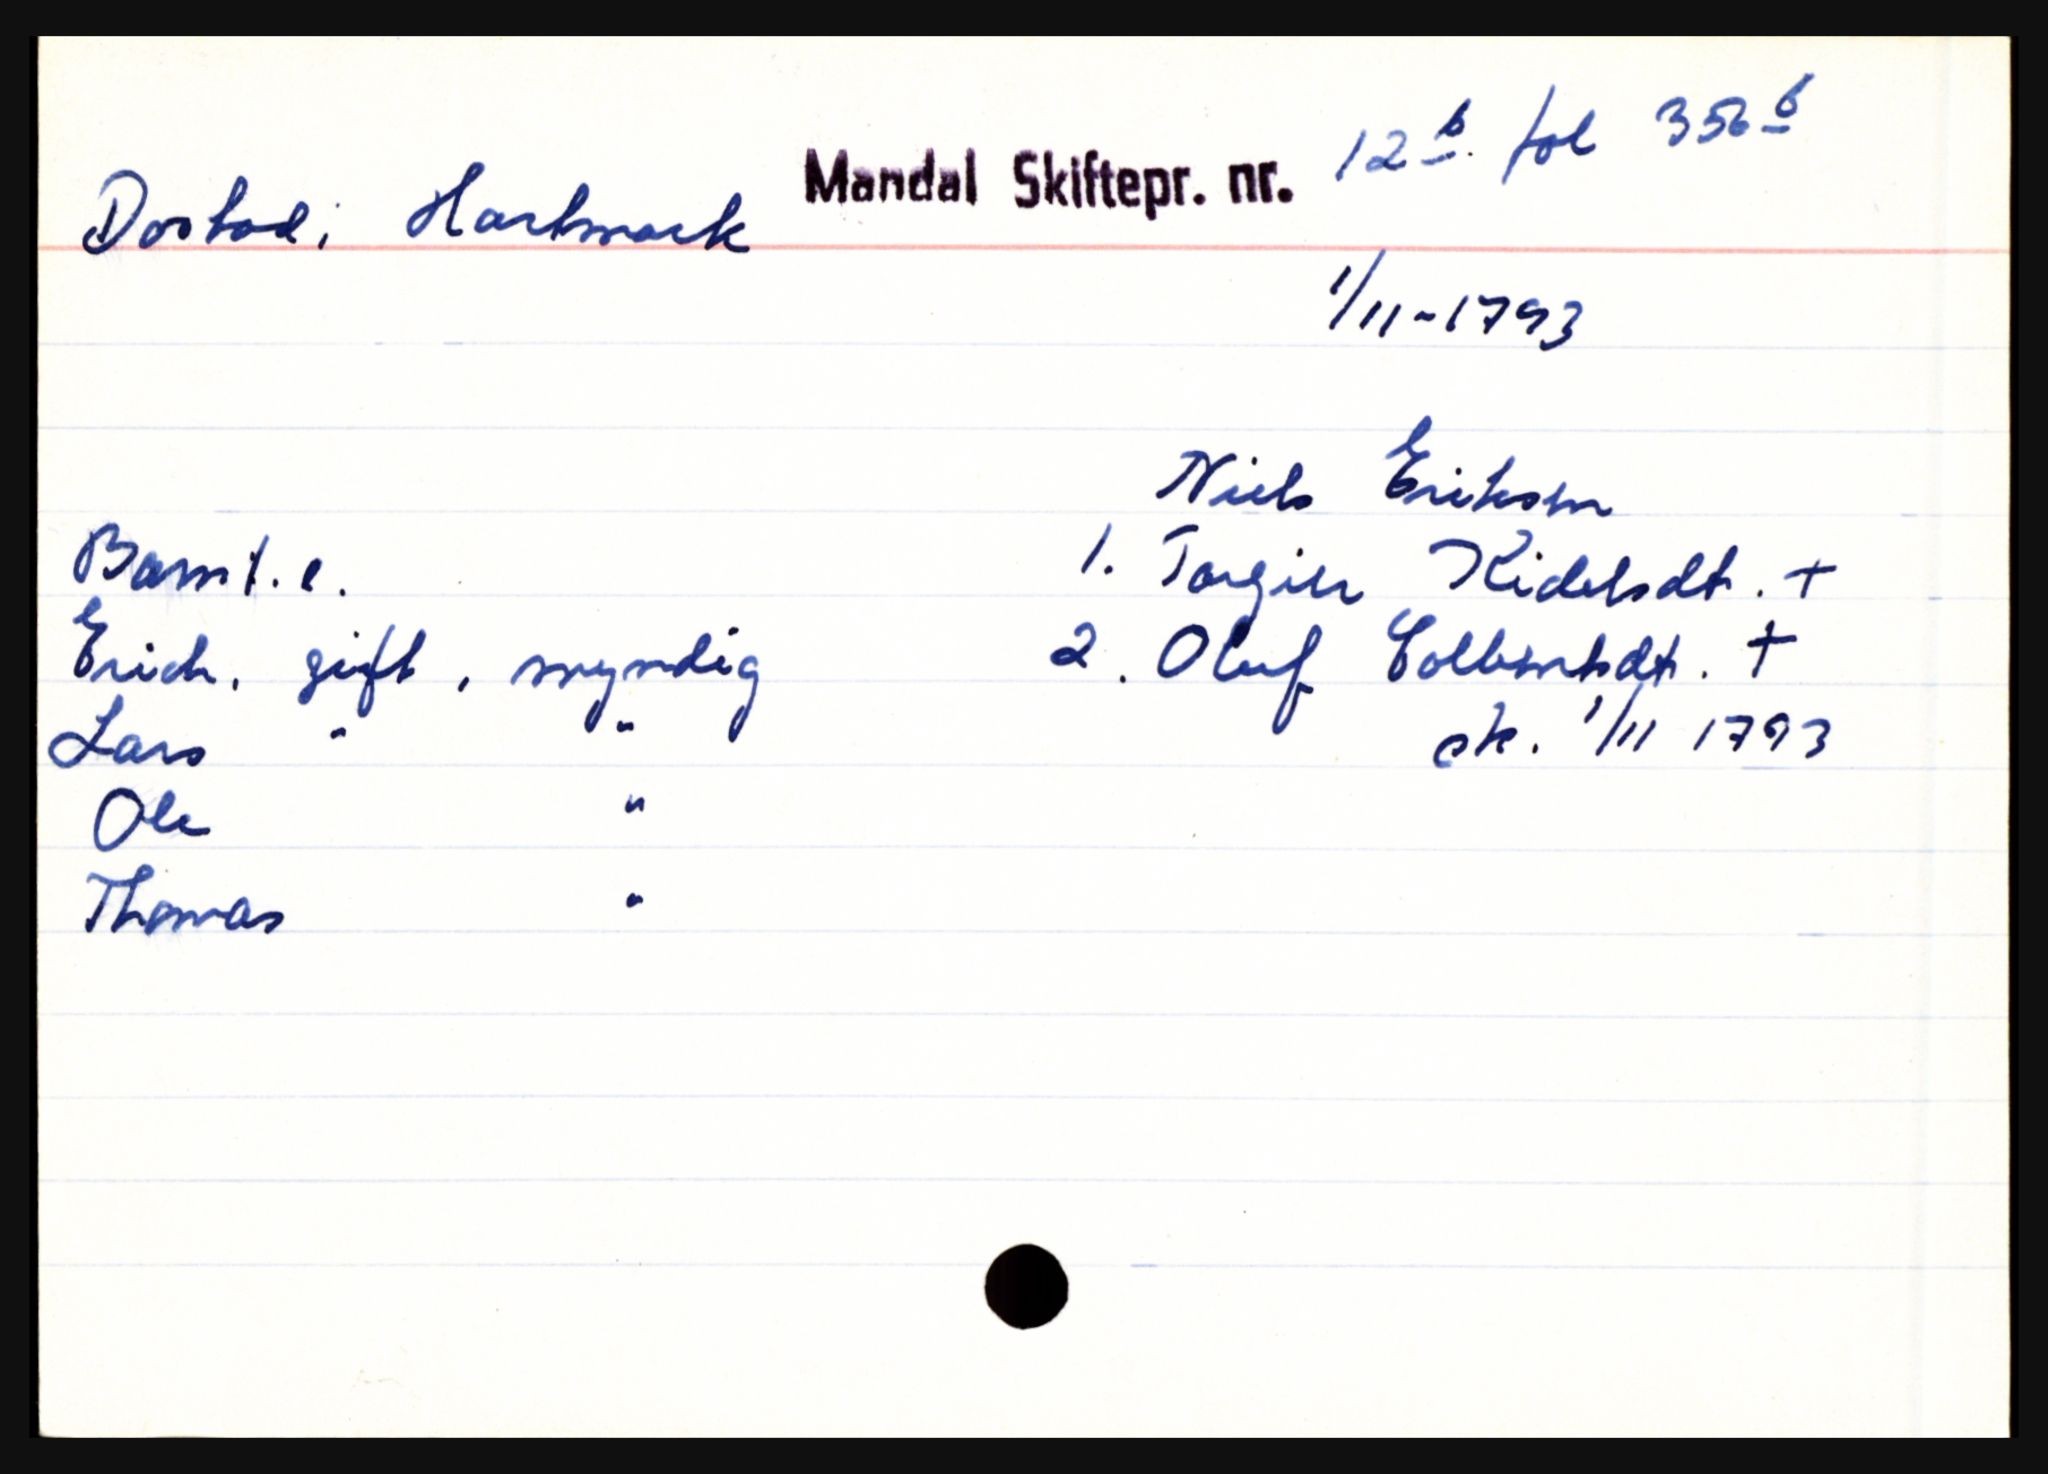 Mandal Skiftepr. nr. 12b. fol 356b
Dostad i Hartmark
1/11-1793
Niels Eriksen
Barn 1. e.
1. Torgier Kidelsdt. +
Erich, gift, myndig
2. Oluf Tolbentsdt. +
Lars " "
sk. 1/11 1793
Ole "
Thomas "